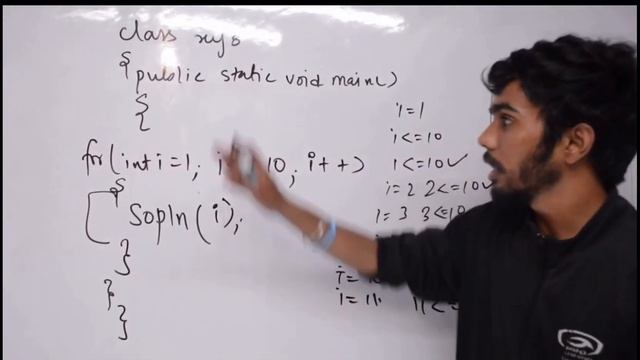 class xyz
{
public static void main()
{
for(int i=1; i 10; i++)
{
Sopln(i);
}
}
}
i=1
i<=10
1<=10✓
i=2 2<=10✓
i=3 3<=10
i=11 11<=